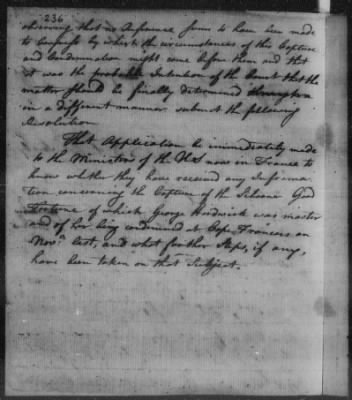 236
observing that no Reference seems to have been made
to Congress by which the circumstances of this Capture
and Condemnation might come before them and that
it was the probable Intention of the Court that the
matter should be finally determined
in a different manner submit the following
Resolution
That Application be immediately made
to the Ministers of the U S now in France to
know whether they have received any Informa
tion concerning the Capture of the Schooner Good
Fortune of which George Hardwick was master
and of her being condemned at Cape Francois on
Novr last, and what further Steps, if any,
have been taken on that Subject.